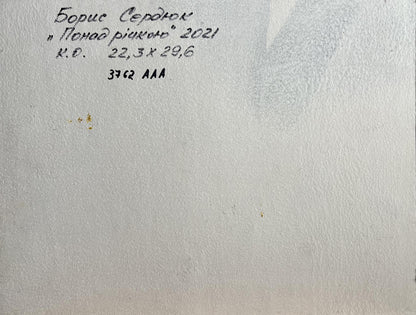 Борис Сердюк
„Понад річкою" 2021
К.О. 22,3 х 29,6
3762 ААА